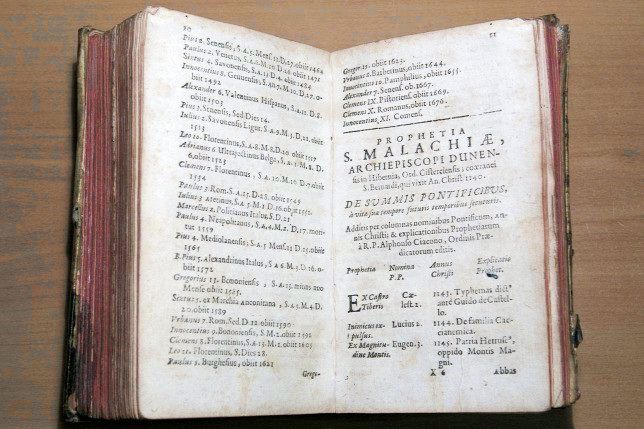 20
Pius 2. Senensis, S.A.5. Mens. D.27. obiit 1464
Paulus 2. Venetus, S.A.6.M.10.D.26 obiit 1471
Sixtus 4. Savonensis, S.A.13. D.4. obiit 1484
Innocentius 8. Genuensis, S.A.7.M.10.D.27. o-
biit 1492
Alexander 6. Valentinus Hispanus, S.A.11.D.8.
obiit 1503
Pius 3. Senensis, Sed Dies 14.
Julius 2. Savonensis Ligur, S.A.9.M.3.D.21. obiit
1513
Leo 10. Florentinus, S.A.8.M.8.D.20 obiit 1521
Adrianus 6. Ultrajectinus Belga, S.A.1.M.8.D.
6. obiit 1523
Clemens 7. Florentinus, S.A.10.M.10.D.7. obiit
1534
Paulus 3. Rom. S.A.15. D.28. obiit 1549
Julius 3. Aretinus, S.A.5.M.1.D.16. obiit 1555
Marcellus 2. Politianus Italus, S.D.21
Paulus 4. Neapolitanus, S.A.4.M.2. D.27. mor-
tuus 1559
Pius 4. Mediolanensis, S.A.5 Mens.11 D.15. obiit
1565
B. Pius 5. Alexandrinus Italus, S A 6.M.3.D.16. o-
biit 1572
Gregorius 13. Bononiensis, S A.13. minus uno
Mense obiit 1585.
Sixtus 5. ex Marchia Anconitana, S.A.5.M.4.D.
20. obiit 1589
Urbanus 7. Rom. Sed. D.12. obiit 1590
Innocentius 9. Bononiensis, S.M.2. obiit 1591
Clemens 8. Florentinus, S.A.13.M.1. obiit 1605
Leo 11. Florentinus, S. Dies 28.
Paulus 5. Burghesius, obiit 1621
Grego-
21
Gregor. 15. obiit 1623.
Urbanus 8. Barberinus, obiit 1644.
Innocentius 10. Pamphilius, obiit 1655.
Alexander 7. Senens. ob. 1667.
Clemens IX. Pistoriens. obiit 1669.
Clemens X. Romanus, obiit 1676.
Innocentius XI. Comens.
PROPHETIA
S. MALACHIÆ,
ARCHIEPISCOPI DUNEN-
sis in Hibernia, Ord. Cisterciensis, coætanei
S. Bernardi, qui vixit An. Christi 1140.
DE SUMMIS PONTIFICIBUS,
à vita sua tempore futuris temporibus secuturis.
Additis per columnas nominibus Pontificum, an-
nis Christi; & explicationibus Prophetiarum
à R.P. Alphonso Ciacono, Ordinis Præ-
dicatorum editis.
Prophetia Nomina Annus Explicatio
P.P. Christi Prophet.
EX Castro Cæ- 1143. Typhernas dict⁹
Tiberis lest. 2. ante Guido de Castel-
lo.
Inimicus ex- Lucius 2. 1144. De familia Cac-
pulsus. cianemica.
Ex Magnitu- Eugen. 3. 1145. Patria Hetrusc⁹,
dine Montis. oppido Montis Ma-
gni.
X 6 Abbas